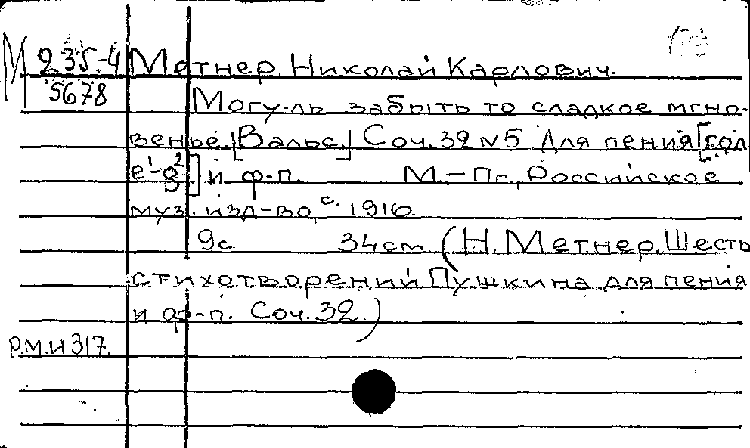 М 235-4 Метнер, Николай Карлович.
5678 Могу ль забыть то сладкое мгно-
венье. [Вальс.] Соч. 32 №5 Для пения [сол
e¹-g²] и ф.-п. М.-Пг., Российское
муз. изд-во, с. 1916
9с 34см (Н. Метнер. Шесть
стихотворений Пушкина для пения
и ф.-п. Соч. 32.)
Р.М.И 317.